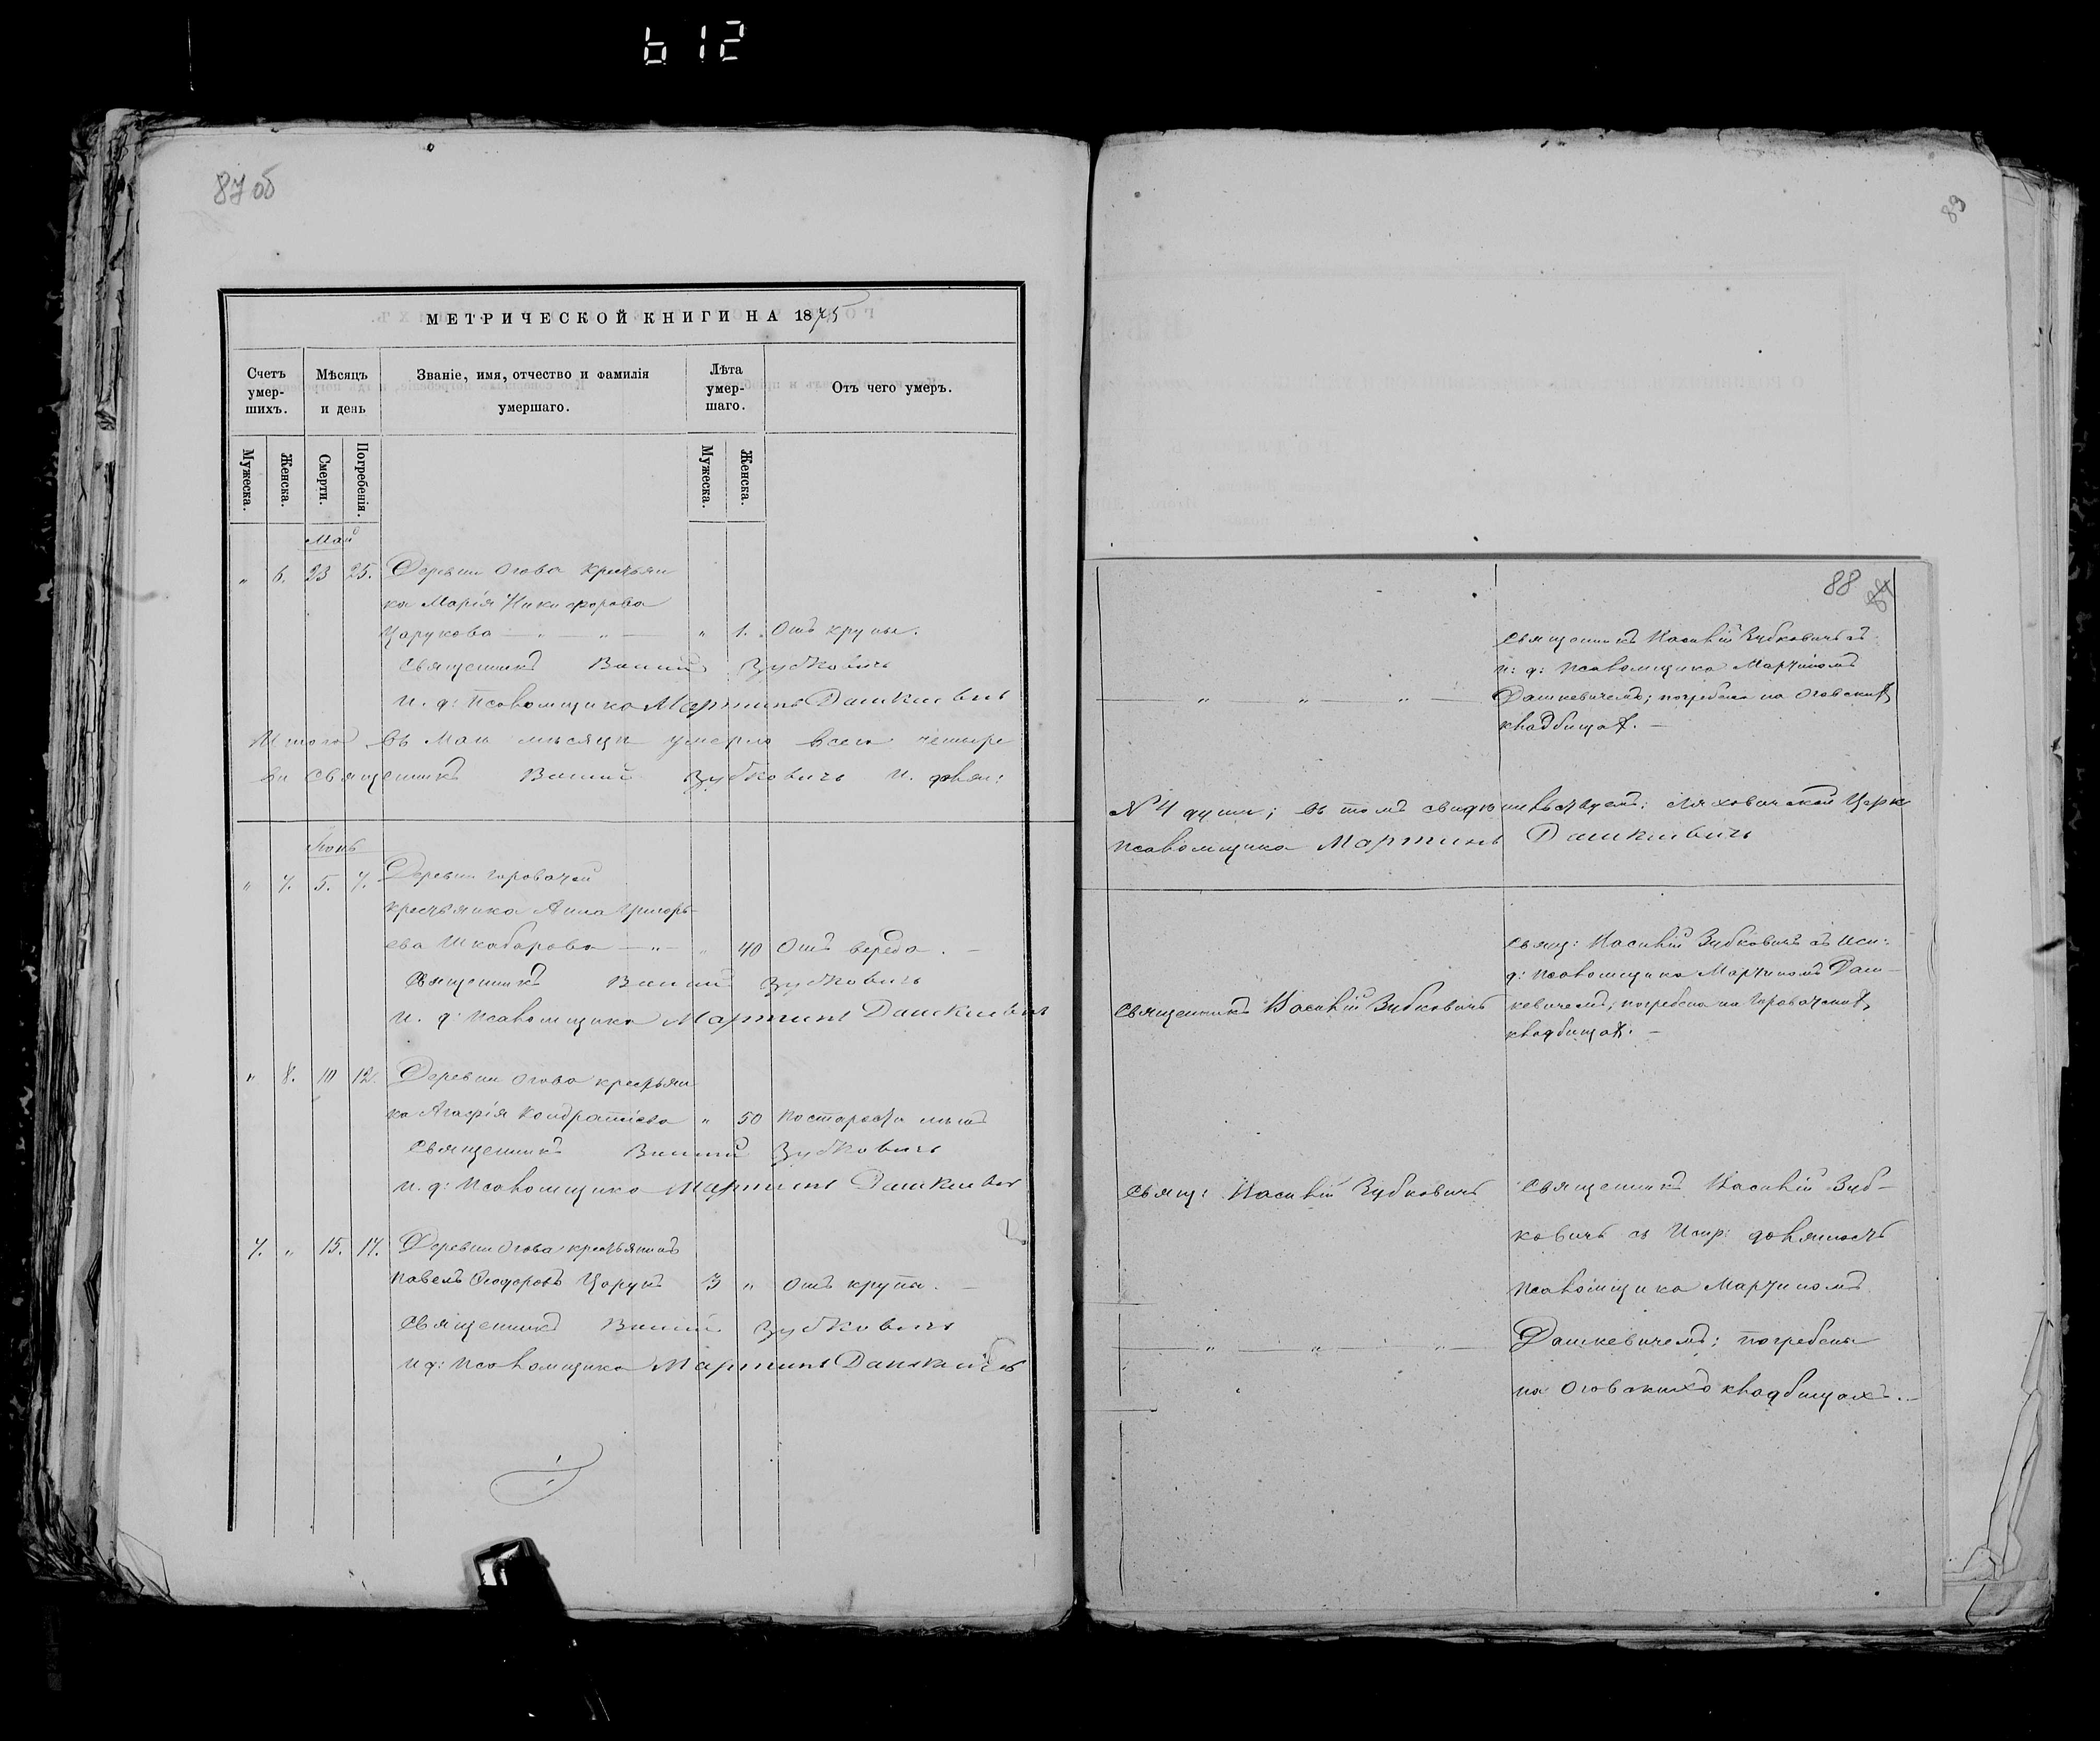 612
87 об
МЕТРИЧЕСКОЙ КНИГИ НА 1875
Счетъ умер-шихъ.
Мѣсяцъ и день
Званіе, имя, отчество и фамилія умершаго.
Лѣта умер-шаго.
Отъ чего умеръ.
Мужеска.
Женска.
Смерти.
Погребенія.
Мужеска.
Женска.
Май
" 6. 23 25. Деревни Огова крестьян
ка Марія Никифорова
Царукова — " — " — " 1. Отъ крупы.
Священникъ Василій Зубковичъ
И. д: Псаломщика Мартинъ Дашкевичъ
Итого въ Маи мѣсяцѣ умерло всего четыре
ви Священникъ Василій Зубковичъ И. должн:
Іюнь
" 7. 5. 7. Деревни Гороватой
крестьянка Анна Григорь-
ева Шкабарова — " — " 40 Отъ вереда. —
Священникъ Василій Зубковичъ
И. д: Псаломщика Мартинъ Дашкевичъ
" 8. 10 12. Деревни Огова крестьян
ка Агафія Кондратіева " 50 По старости лѣтъ
Священникъ Василій Зубковичъ
И. д: Псаломщика Мартинъ Дашкевичъ
7. " 15. 17. Деревни Огова крестьянинъ
Павелъ Ѳеодоровъ Царукъ 3 " Отъ крупа. —
Священникъ Василій Зубковичъ
И д: Псаломщика Мартинъ Дашкевичъ
89
88
Священникъ Василій Зубковичъ съ
И: д: Псаломщика Мартиномъ
— " — " — " — Дашкевичемъ; погребена на Оговскихъ
кладбищахъ. —
№ 4 душъ; въ томъ свидѣтельствуемъ: Ляховичской Церк
Псаломщика Мартинъ Дашкевичъ
Свящ: Василій Зубковичъ съ Исп:
д: Псаломщика Мартиномъ Даш-
Священникъ Василій Зубковичъ кевичемъ; погребена на Гороватскихъ
кладбищахъ. —
Свящ: Василій Зубковичъ Священникъ Василій Зуб-
ковичъ съ Испр: должность
Псаломщика Мартиномъ
— " — " — " — Дашкевичемъ: погребены
на Оговскихъ кладбищахъ. —